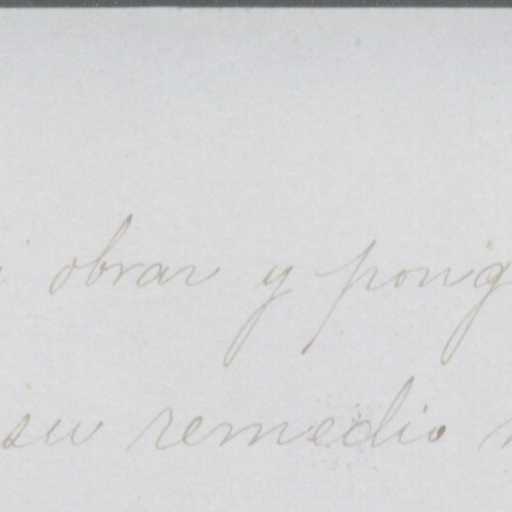 obrar y pong
su remedio